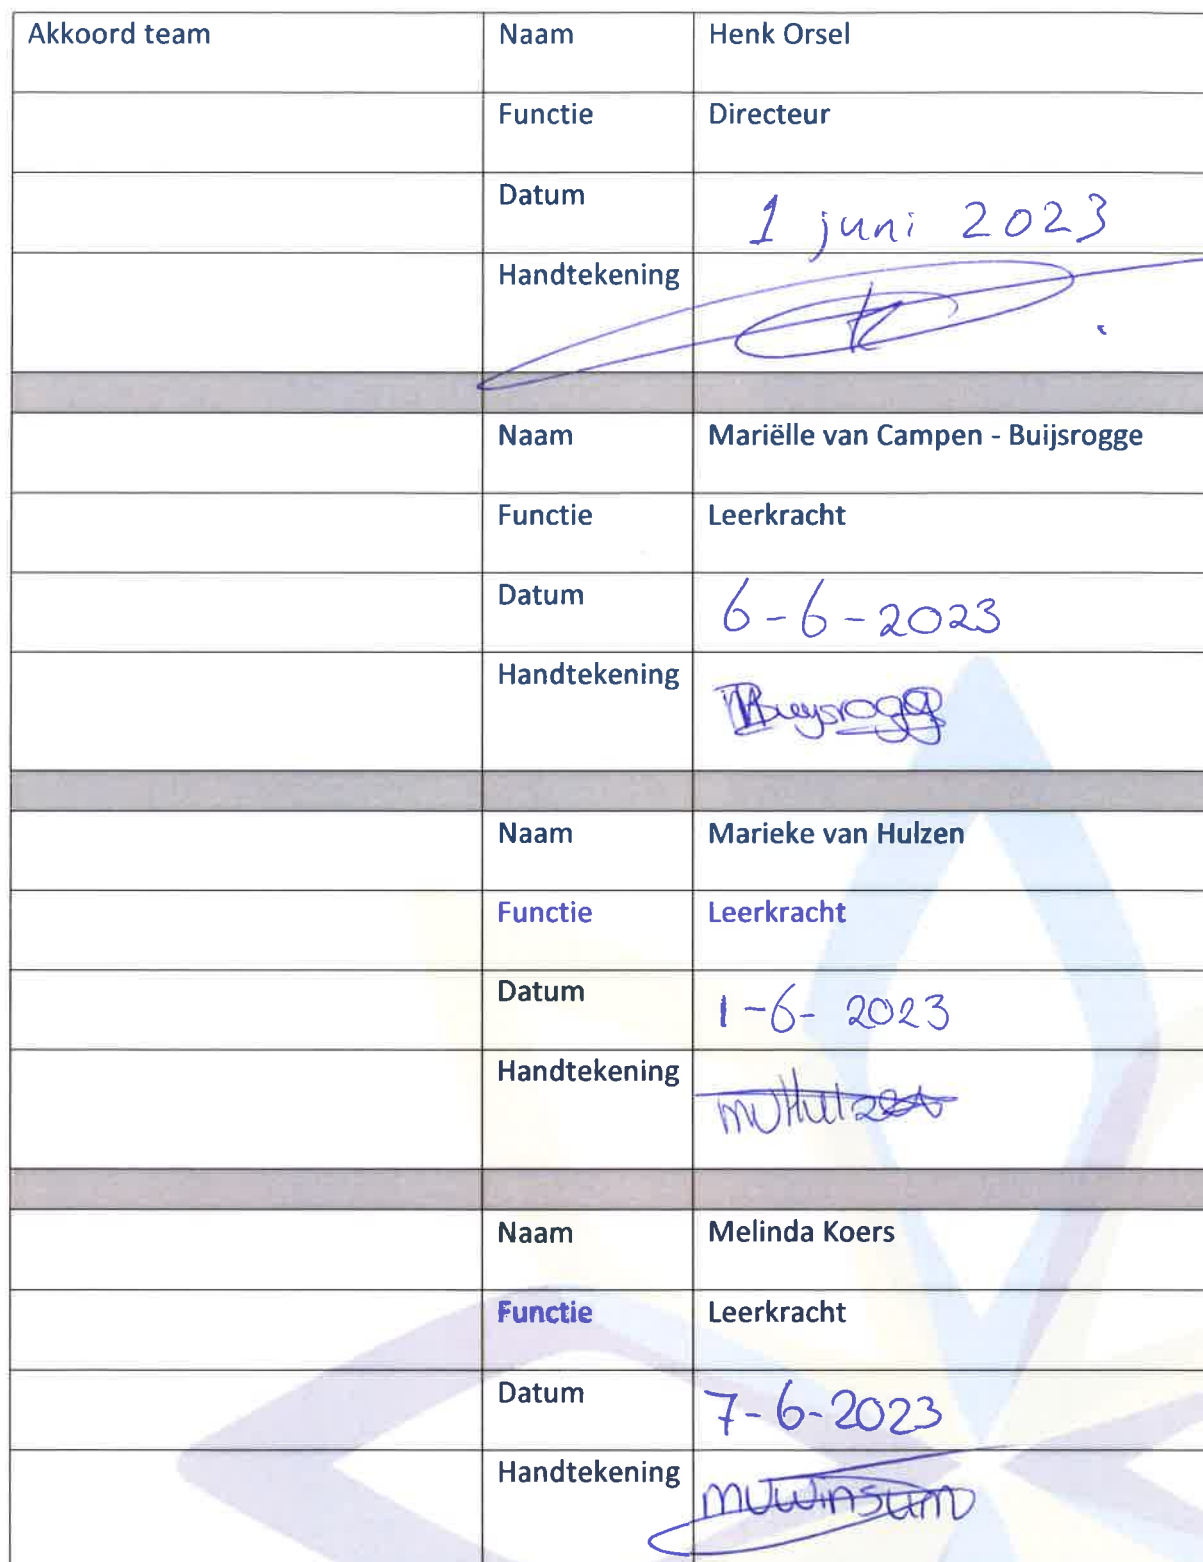 Akkoord team Naam Henk Orsel
Functie Directeur
Datum 1 juni 2023
Handtekening
Naam Mariëlle van Campen - Buijsrogge
Functie Leerkracht
Datum 6-6-2023
Handtekening Buysrogge
Naam Marieke van Hulzen
Functie Leerkracht
Datum 1-6-2023
Handtekening MvHulzen
Naam Melinda Koers
Functie Leerkracht
Datum 7-6-2023
Handtekening